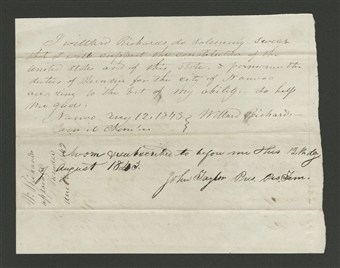 I Willard Richards do solemnly swear
that I will support the constitution of the
united states and of this state, & perform the
duties of Recorder for the city of Nauvoo
according to the best of my ability. So help
me god.
Nauvoo Aug 12, 1843 } Willard Richards
Sworn & subscribed to before me this 12th day
August 1843.
John Taylor Pres. Pro. Tem.
W. Richards